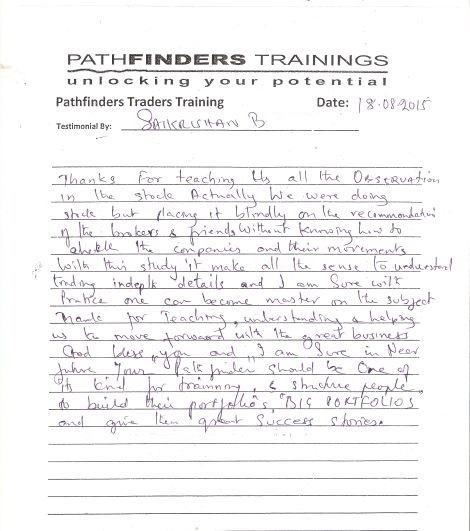 PATHFINDERS TRAININGS
unlocking your potential
Pathfinders Traders Training Date: 18.08.2015
Testimonial By: SAIKRISHAN B
Thanks For teaching Us all the OBSERVATION
in the stock Actually We were doing
stock but placing it blindly on the recommendation
of the brokers & friends Without knowing how to
the companies and their movements
With this study it make all the sense to understand
trading indepth details and I am Sure with
Pratice one can become master on the subject
Thanks for Teaching, understanding & helping
us to move forward with the great business
God bless you and I am Sure in Near
future Your Pathfinder should be One of
its kind for training & structure people
to build their portfolio's, "BIG PORTFOLIOS
and give them great Success stories.